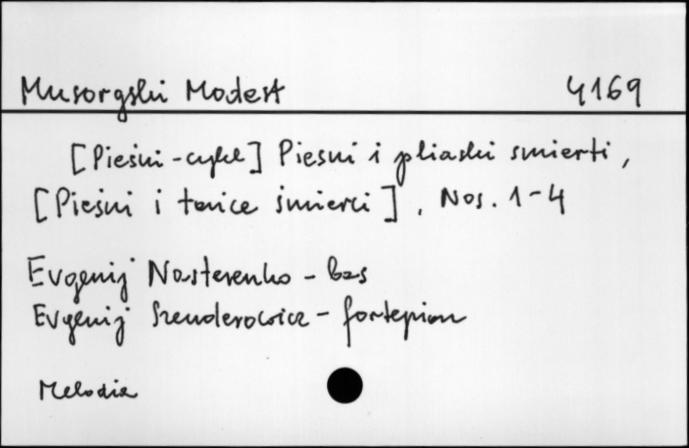 Musorgski Modest 4169
[Pieśni-cykl] Piesni i pliaski smierti,
[Pieśni i tańce śmierci], Nos. 1-4
Evgenij Nesterenko - bas
Evgenij Szenderowicz - fortepian
Melodia